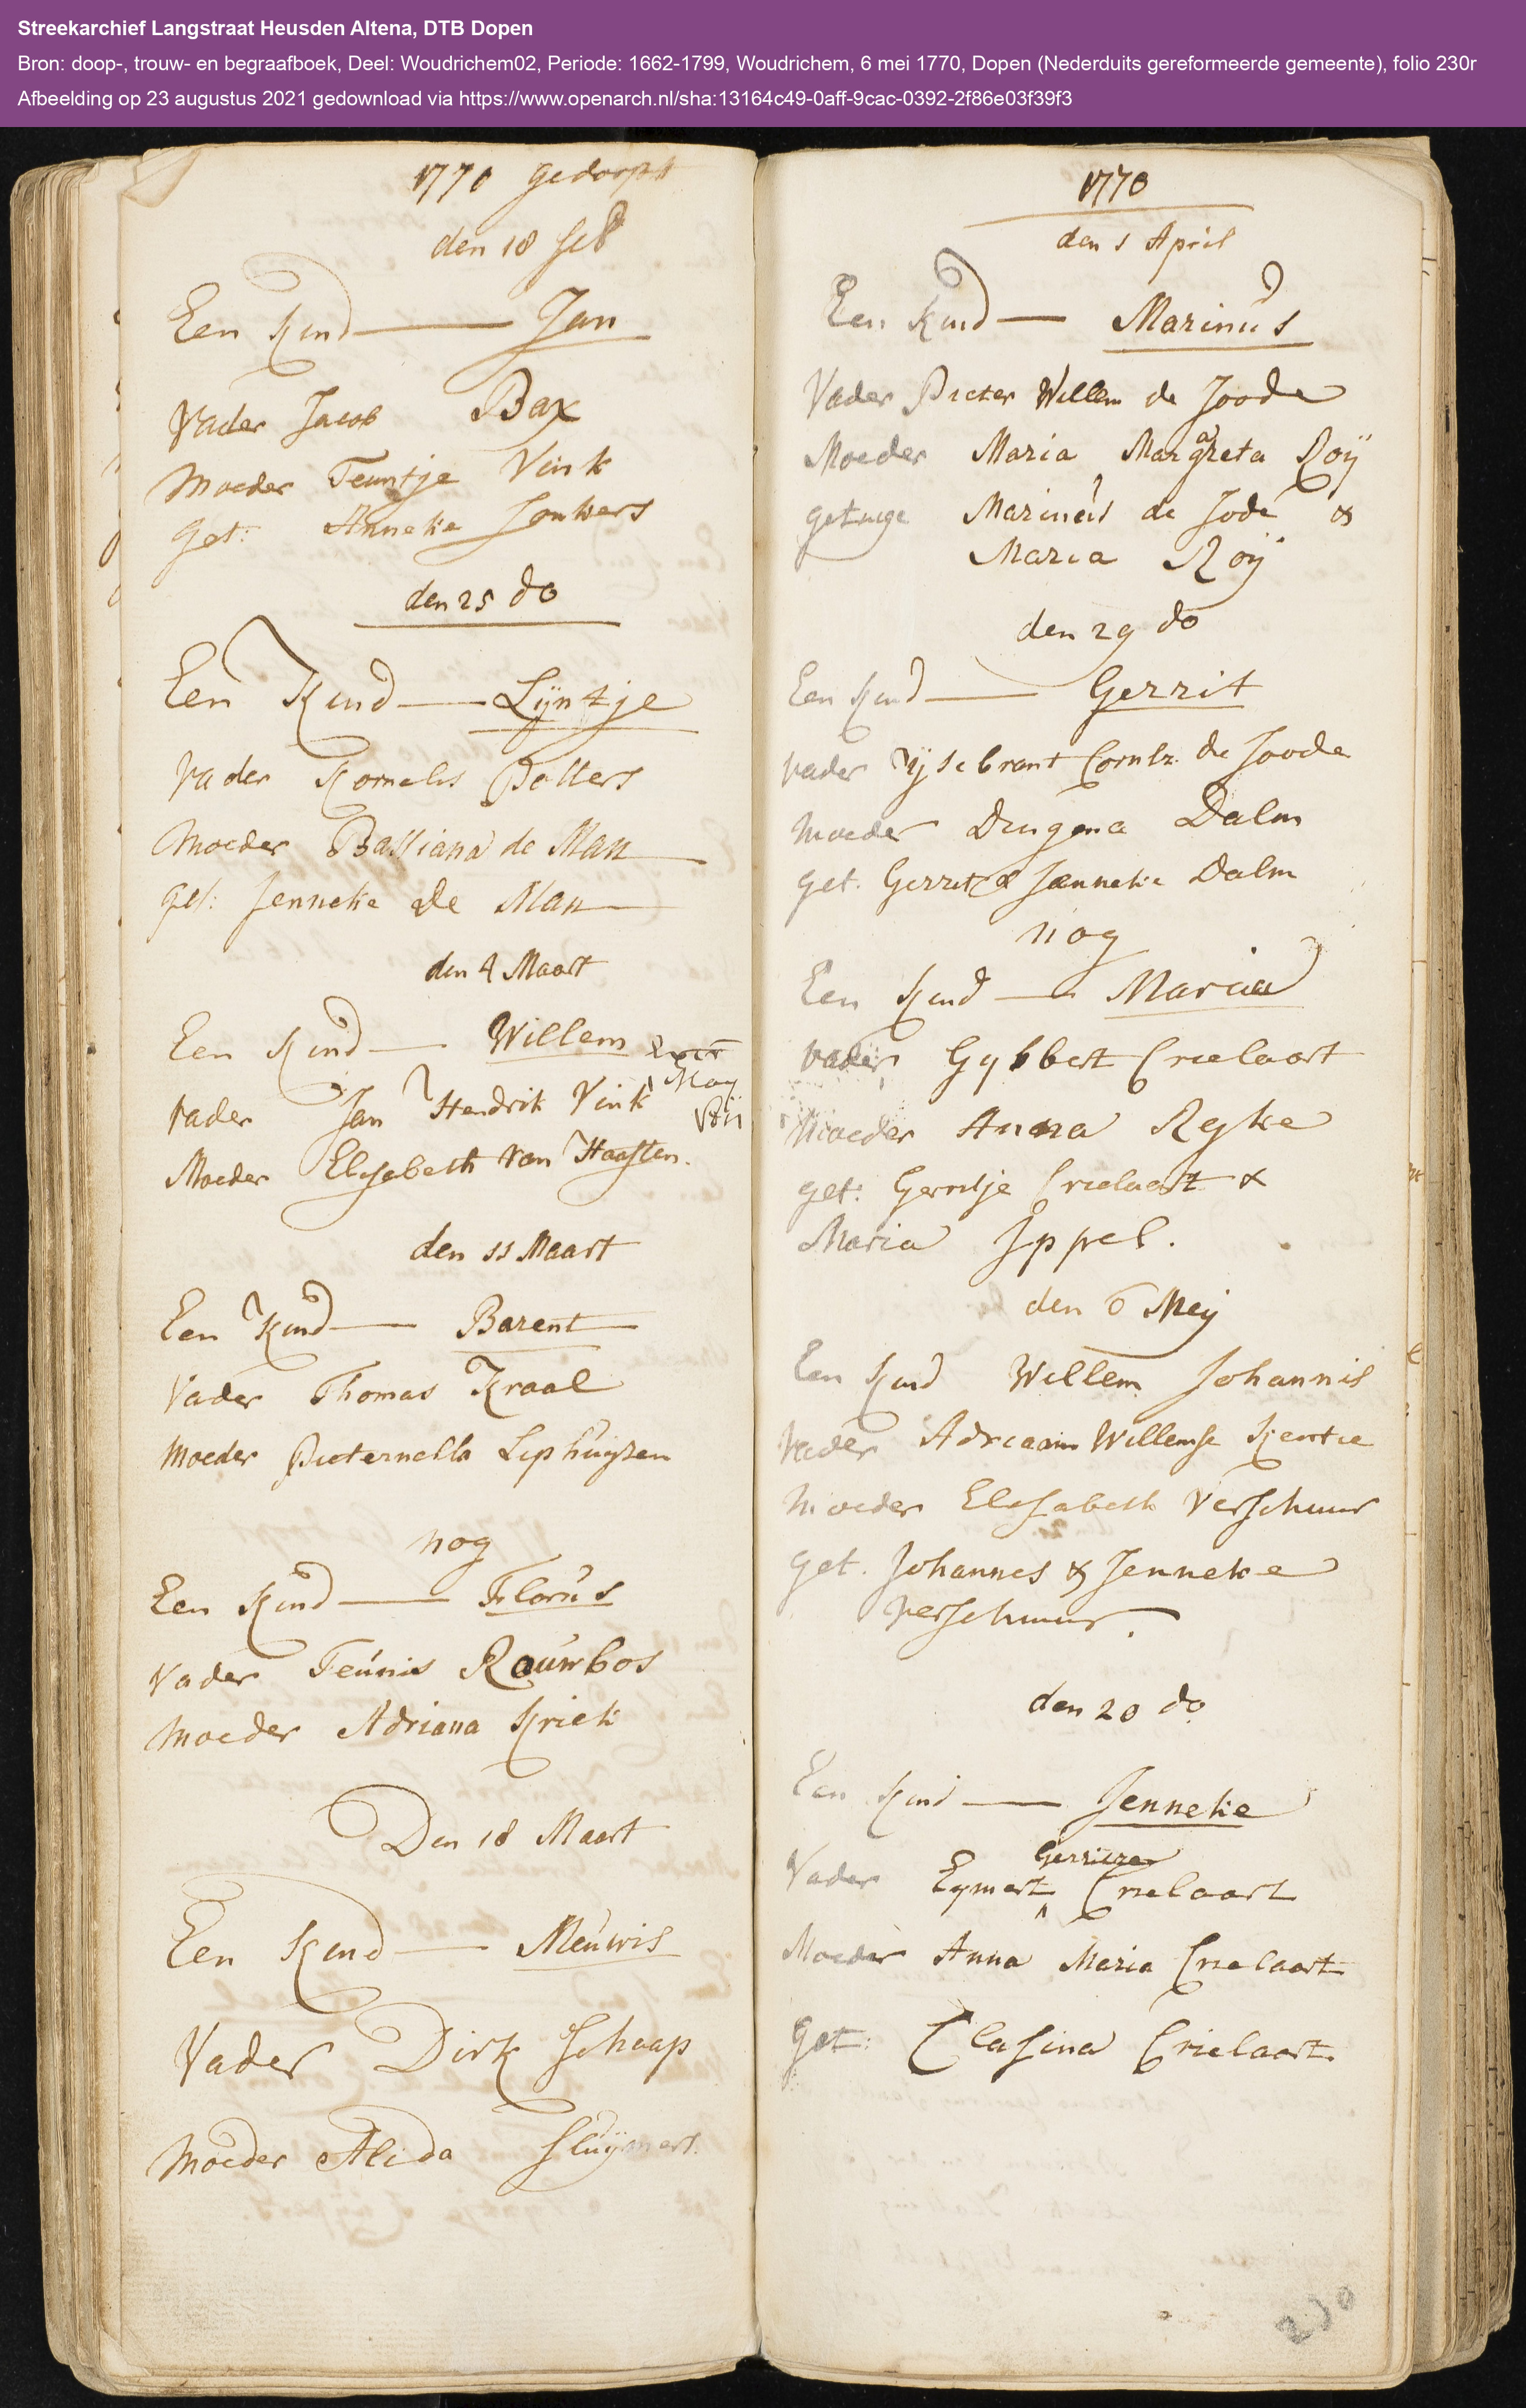 Streekarchief Langstraat Heusden Altena, DTB Dopen
Bron: doop-, trouw- en begraafboek, Deel: Woudrichem02, Periode: 1662-1799, Woudrichem, 6 mei 1770, Dopen (Nederduits gereformeerde gemeente), folio 230r
Afbeelding op 23 augustus 2021 gedownload via https://www.openarch.nl/sha:13164c49-0aff-9cac-0392-2f86e03f39f3
1770 gedoopt
den 18 feb
Een kind — Jan
Vader Jacob Bax
Moeder Teuntje Vink
get: Anneke Jonkers
den 25 do
Een Kind — Lijntje
Vader Kornelis Polters
Moeder Bassiana de Man
get: Jenneke de Man
den 4 Maart
Een Kind — Willem
Vader Jan Hendrik Vink
Moeder Elisabeth van Haaften.
den 11 Maart
Een Kind — Barent
Vader Thomas Kraal
Moeder Pieternella Liphuijzen
nog
Een Kind — Florus
Vader Teunis Rouwbos
Moeder Adriana Kriek
Den 18 Maart
Een Kind — Meuwis
Vader Dirk Schaap
Moeder Alida Sluijmers.
1770
den 1 April
Een Kind — Marinus
Vader Pieter Willem de Joode
Moeder Maria Margreta Roij
getuige Marinus de Jode &
Maria Roij
den 29 do
Een Kind — Gerrit
Vader Ijsebrant Cornlz. de Joode
Moeder Dingena Dalm
get. Gerrit & Janneke Dalm
nog
Een Kind — Maria
Vader Gybbert Crielaart
Moeder Anna Ryke
get: Gerritje Crielaart &
Maria Ippel.
den 6 Meij
Een Kind Willem Johannis
Vader Adriaan Willemse Kentie
Moeder Elisabeth Verschuur
get. Johannes & Jenneke
Verschuur.
den 20 do
Een Kind — Jenneke
Gerritze
Vader Eymert Crielaart
Moeder Anna Maria Crielaart
Get: Clasina Crielaart.
230